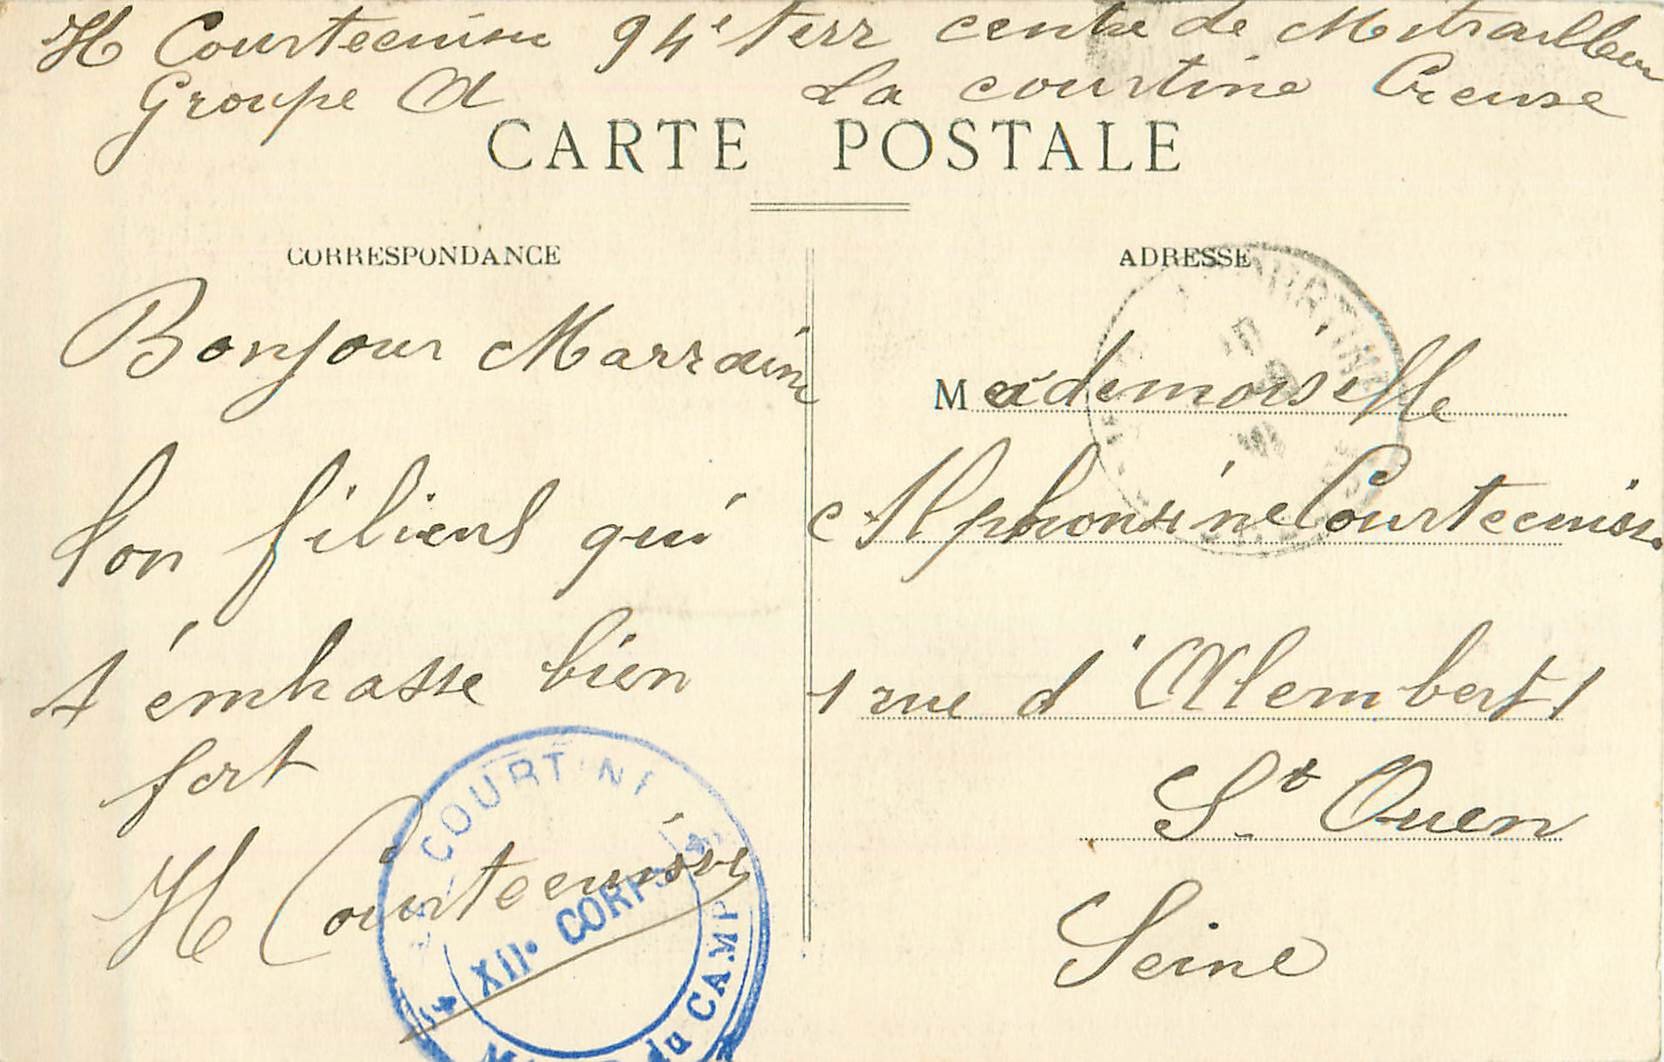 H Courtecuisse 94e Terr centre de Mitrailleur
Groupe A La courtine Creuse
CARTE POSTALE
CORRESPONDANCE
Bonjour Marraine
ton filiend qui
t'embasse bien
fort
H Courtecuisse
LA COURTINE
XIIe CORPS
du CAMP
ADRESSE
Mademoiselle
Alphonsine Courtecuisse
1 rue d'Alembert 1
St Ouen
Seine
COURTINE